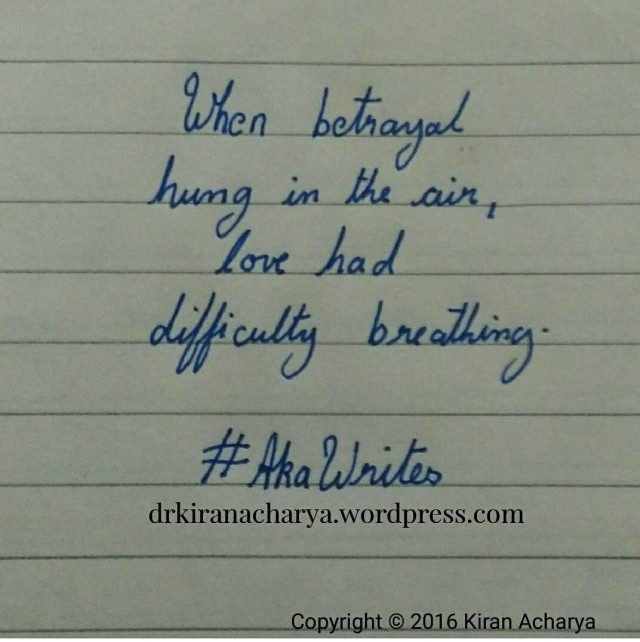 When betrayal
hung in the air,
love had
difficulty breathing.
#AkaWrites
drkiranacharya.wordpress.com
Copyright © 2016 Kiran Acharya